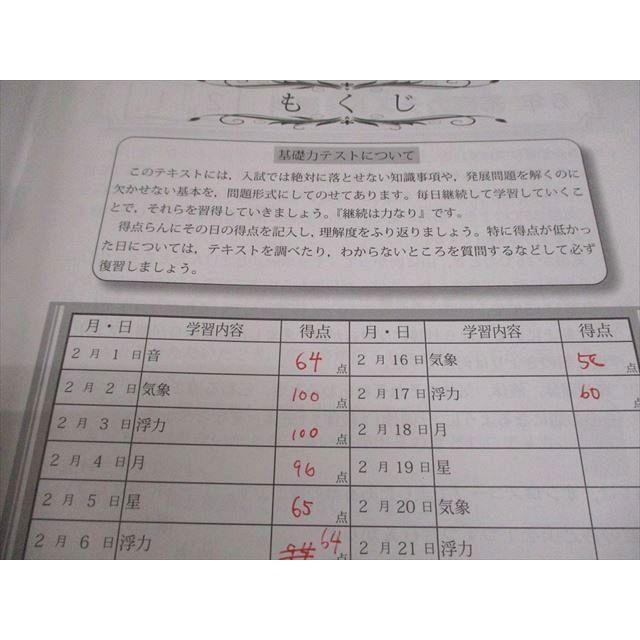 もくじ
基礎力テストについて
このテキストには，入試では絶対に落とせない知識事項や，発展問題を解くのに
欠かせない基本を，問題形式にしてのせてあります。毎日継続して学習していくこ
とで，それらを習得していきましょう。『継続は力なり』です。
得点らんにその日の得点を記入し，理解度をふり返りましょう。特に得点が低かっ
た日については，テキストを調べたり，わからないところを質問するなどして必ず
復習しましょう。
月・日 学習内容 得点 月・日 学習内容 得点
2月1日 音 64点 2月16日 気象 点
2月2日 気象 100点 2月17日 浮力 60点
2月3日 浮力 100点 2月18日 月
2月4日 月 96点 2月19日 星
2月5日 星 65点 2月20日 気象
2月6日 浮力 94 64点 2月21日 浮力